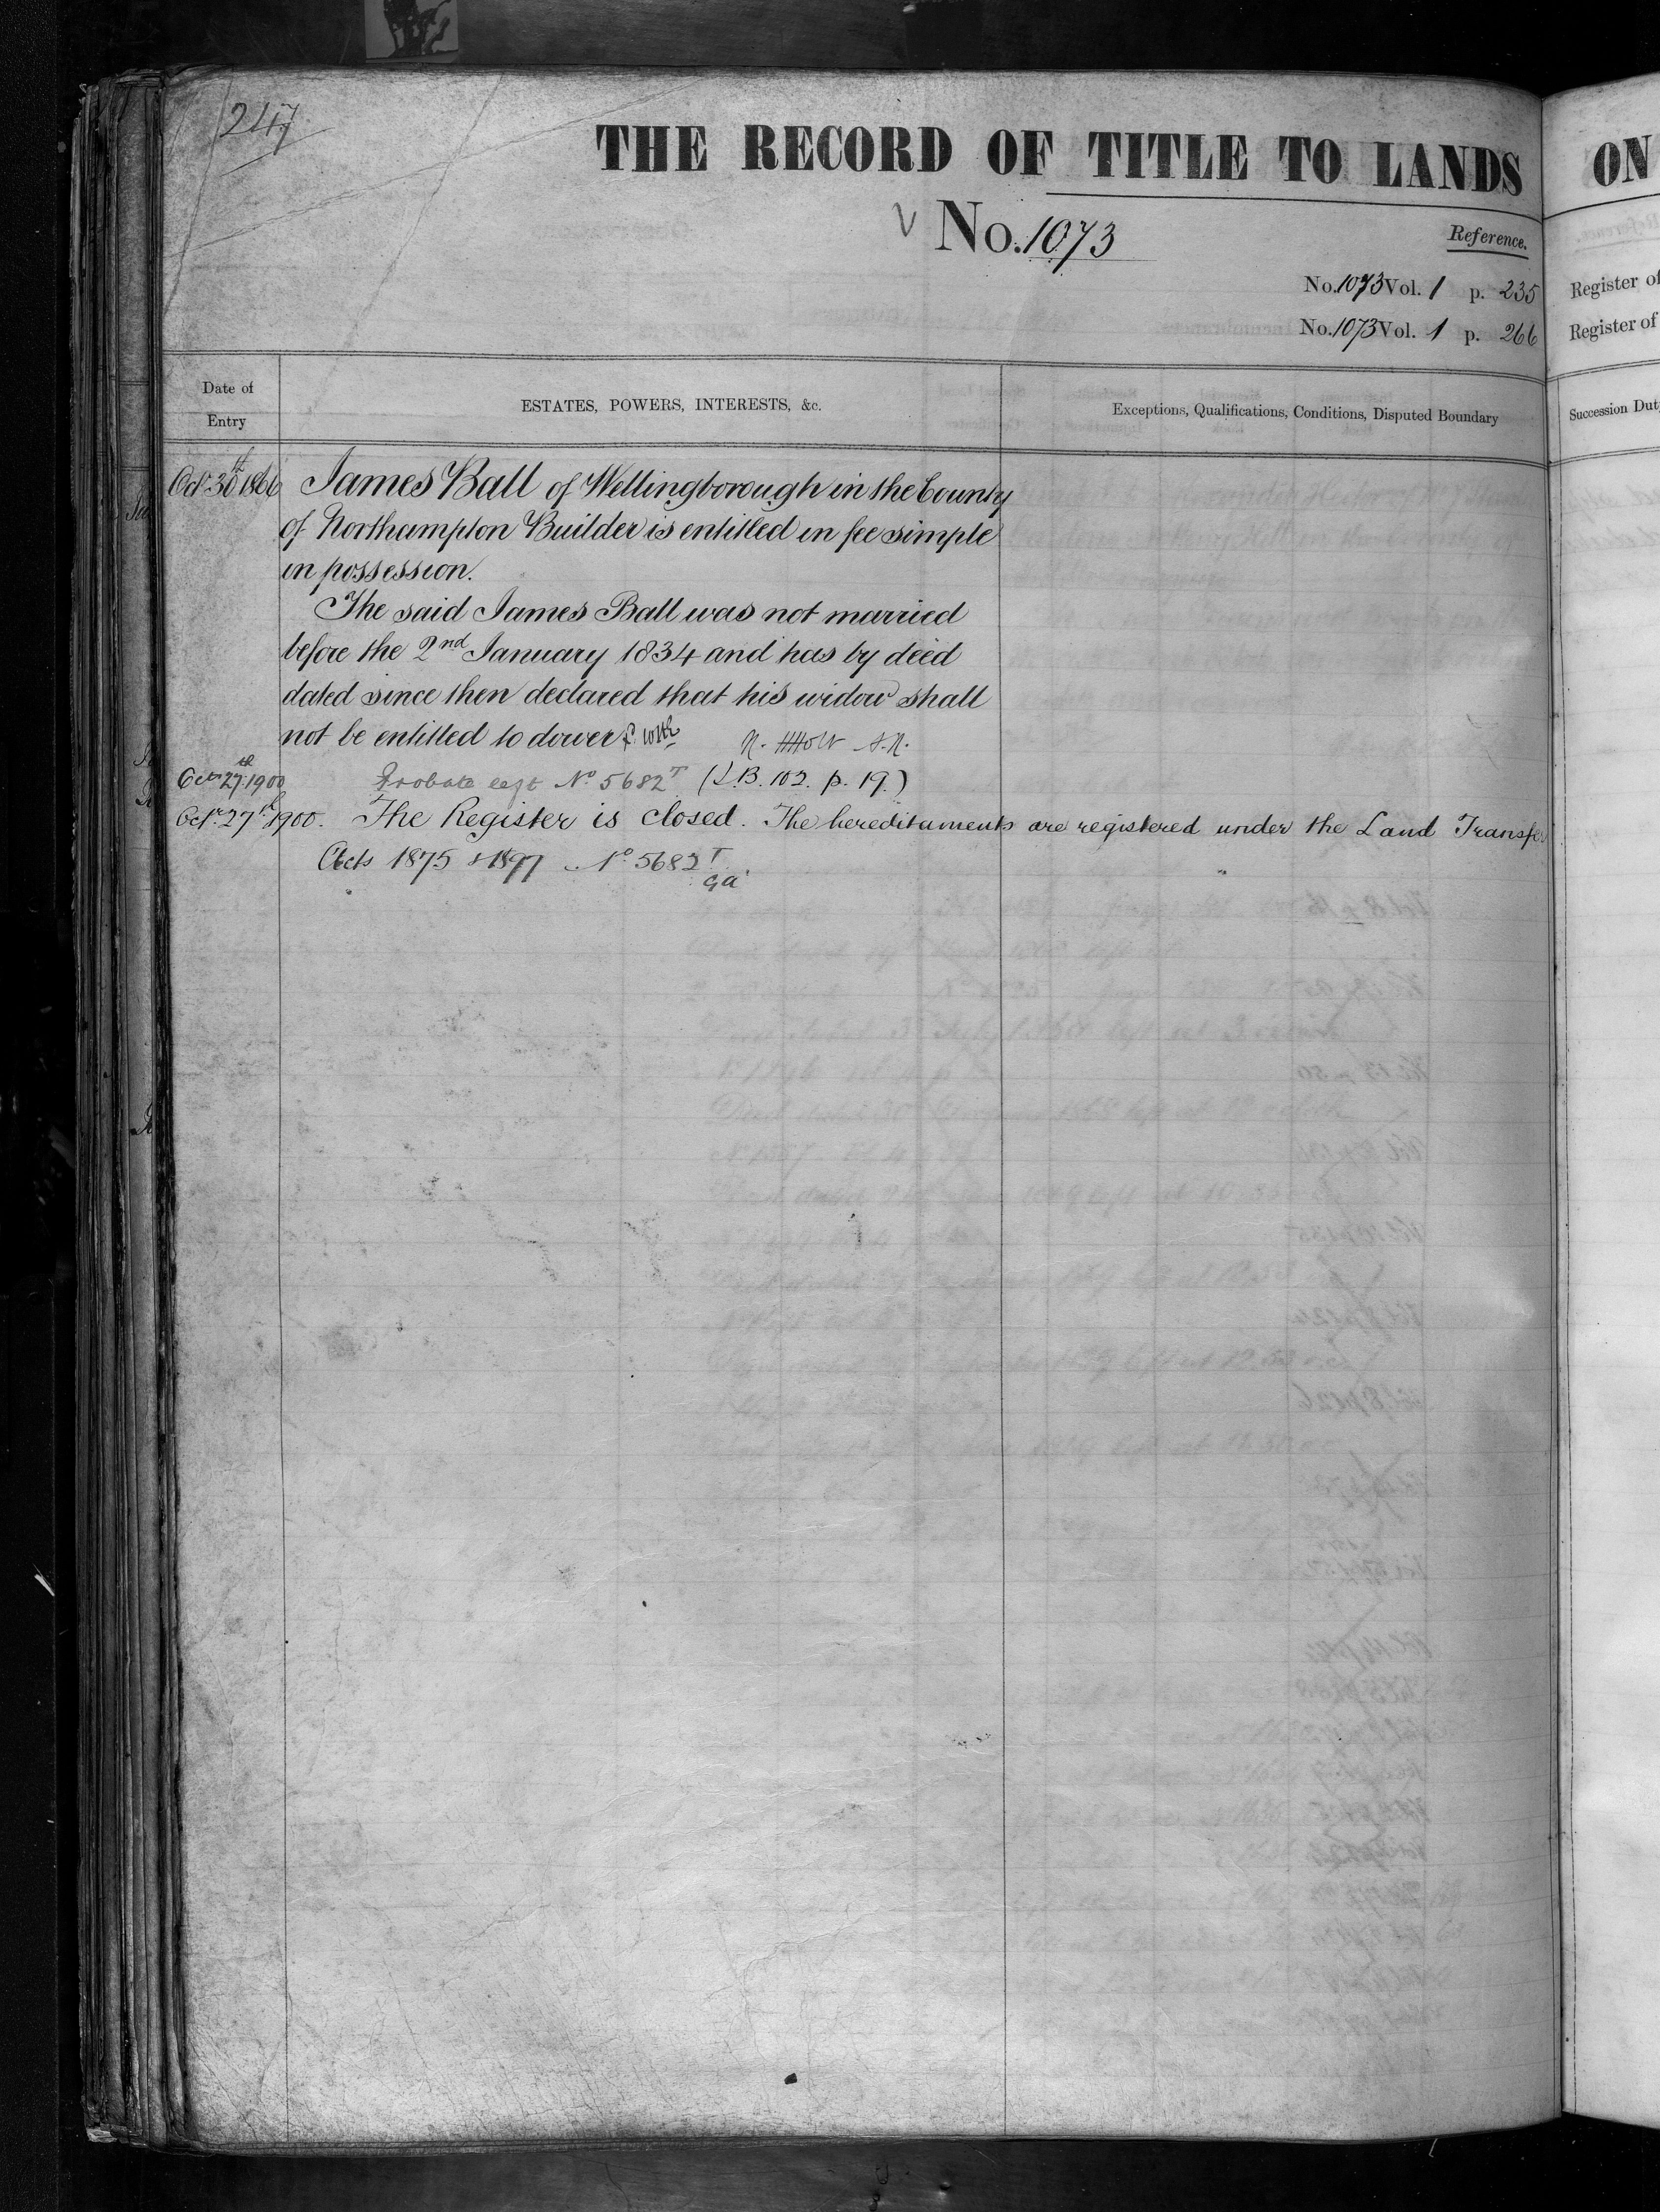 247
THE RECORD OF TITLE TO LANDS
ON
No. 1073
Reference.
No. 1073 Vol. 1 p. 235
Register of
No. 1073 Vol. 1 p. 266
Register of
Date of Entry
ESTATES, POWERS, INTERESTS, &c.
Exceptions, Qualifications, Conditions, Disputed Boundary
Succession Dut
Octr 30th 1866 James Ball of Wellingborough in the County
of Northampton Builder is entitled in fee simple
in possession.
The said James Ball was not married
before the 2nd January 1834 and has by deed
dated since then declared that his widow shall
not be entitled to dower
Octr 27th 1900 Probate left No 5682T (L.B. 102. p. 19.)
Octr. 27th 1900. The Register is closed. The hereditaments are registered under the Land Transfer
Acts 1875 & 1897 No 5682T